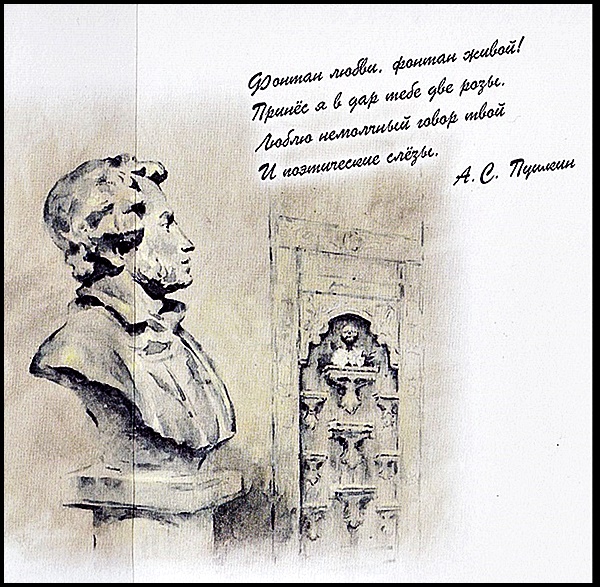 Фонтан любви, фонтан живой!
Принёс я в дар тебе две розы.
Люблю немолчный говор твой
И поэтические слёзы.
А.С. Пушкин